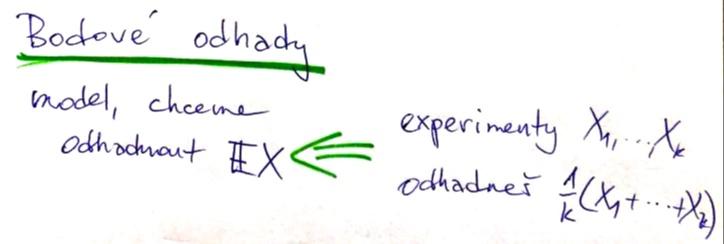 Bodové odhady
model, chceme
odhadnout 𝔼X
experimenty X₁,...,Xₖ
odhadneš 1/k(X₁+...+Xₖ)